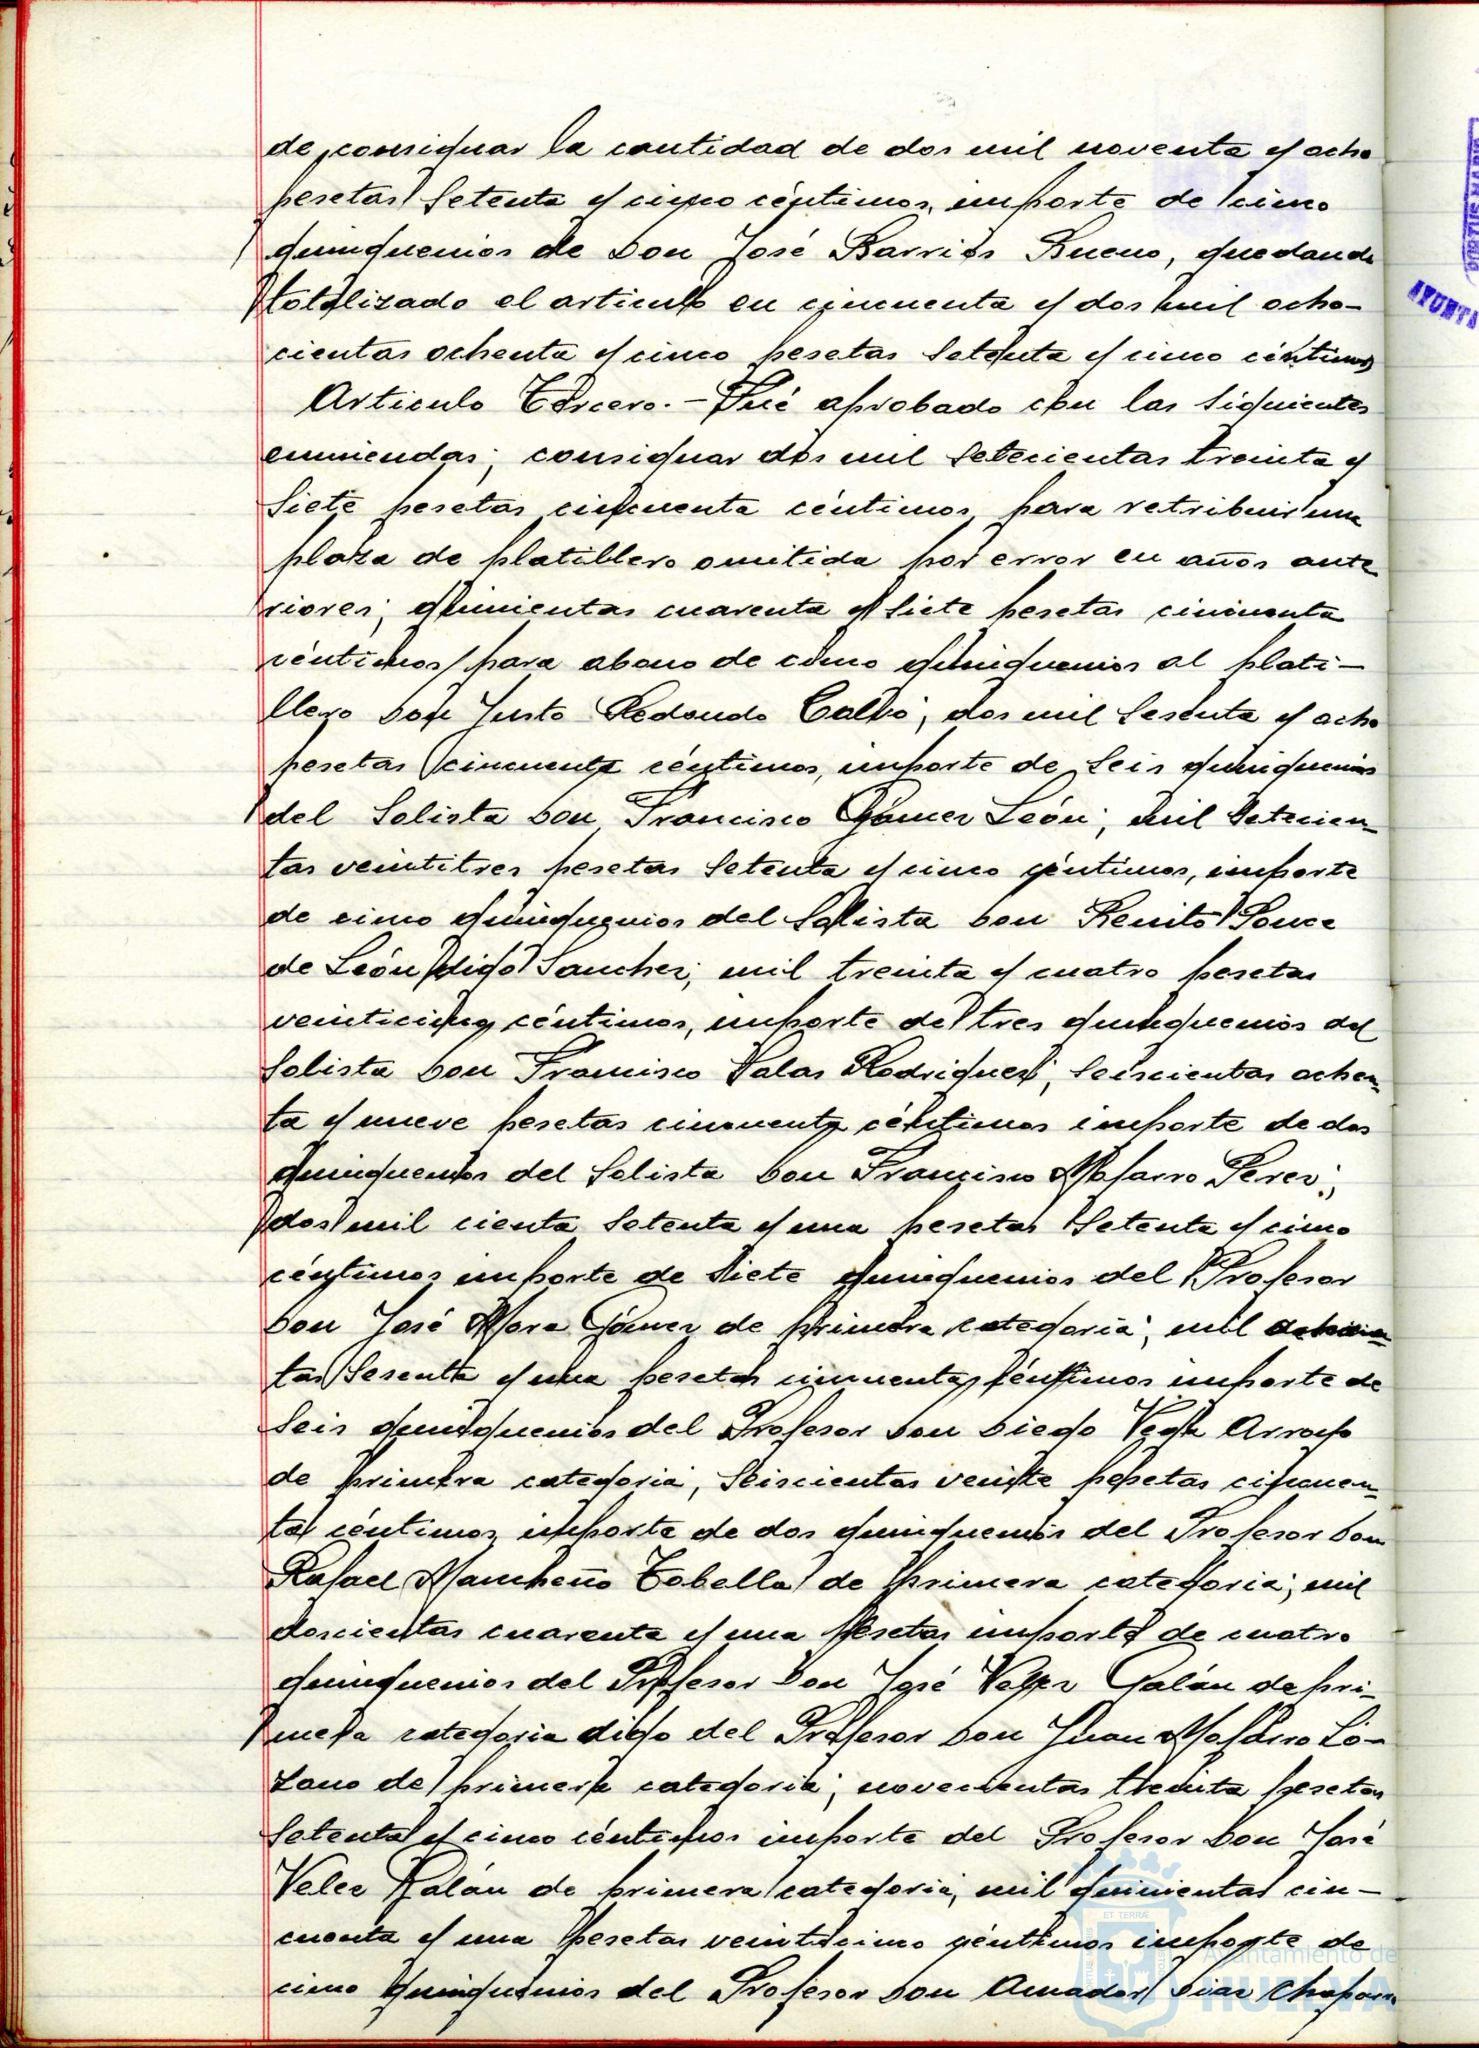 de consignar la cantidad de dos mil noventa y ocho
pesetas setenta y cinco céntimos, importe de cinco
quinquenios de Don José Barrios Bueno, quedando
totalizado el articulo en cincuenta y dos mil ocho-
cientas ochenta y cinco pesetas setenta y cinco céntimos
Articulo Tercero.- Fué aprobado con las siguientes
enmiendas; consignar dos mil setecientas treinta y
siete pesetas cincuenta céntimos para retribuir una
plaza de platillero omitida por error en años ante
riores; quinientas cuarenta y siete pesetas cincuenta
céntimos para abono de cinco quinquenios al plati-
llero Don Justo Redondo Calvo; dos mil sesenta y ocho
pesetas cincuenta céntimos, importe de seis quinquenios
del Solista Don Francisco Gómez León; mil setecien-
tas veintitres pesetas setenta y cinco céntimos, importe
de cinco quinquenios del Solista Don Benito Ponce
de León digo Sanchez; mil treinta y cuatro pesetas
veinticinco céntimos, importe de tres quinquenios del
Solista Don Francisco Salas Rodriguez; seiscientas ochen-
ta y nueve pesetas cincuenta céntimos importe de dos
quinquenios del Solista Don Francisco Mojarro Perez;
dos mil cienta setenta y una pesetas setenta y cinco
céntimos importe de siete quinquenios del Profesor
Don José Mora Gómez de primera categoria; mil ochocien-
tas sesenta y una pesetas cincuenta céntimos importe de
seis quinquenios del Profesor Don Diego Vega Arroyo
de primera categoria; seiscientas veinte pesetas cincuen-
ta céntimos importe de dos quinquenios del Profesor Don
Rafael Mancheño Tobella de primera categoria; mil
doscientas cuarenta y una pesetas importe de cuatro
quinquenios del Profesor Don José Velez Galán de pri-
mera categoria digo del Profesor Don Juan Mojarro Lo-
zano de primera categoria; novecientas treinta pesetas
setenta y cinco céntimos importe del Profesor Don José
Velez Galán de primera categoria; mil quinientas cin-
cuenta y una pesetas veinticinco céntimos importe de
cinco quinquenios del Profesor Don Amador Diaz Chaparro
AYUNTA
ET TERRÆ
Ayuntamiento de
HUELVA